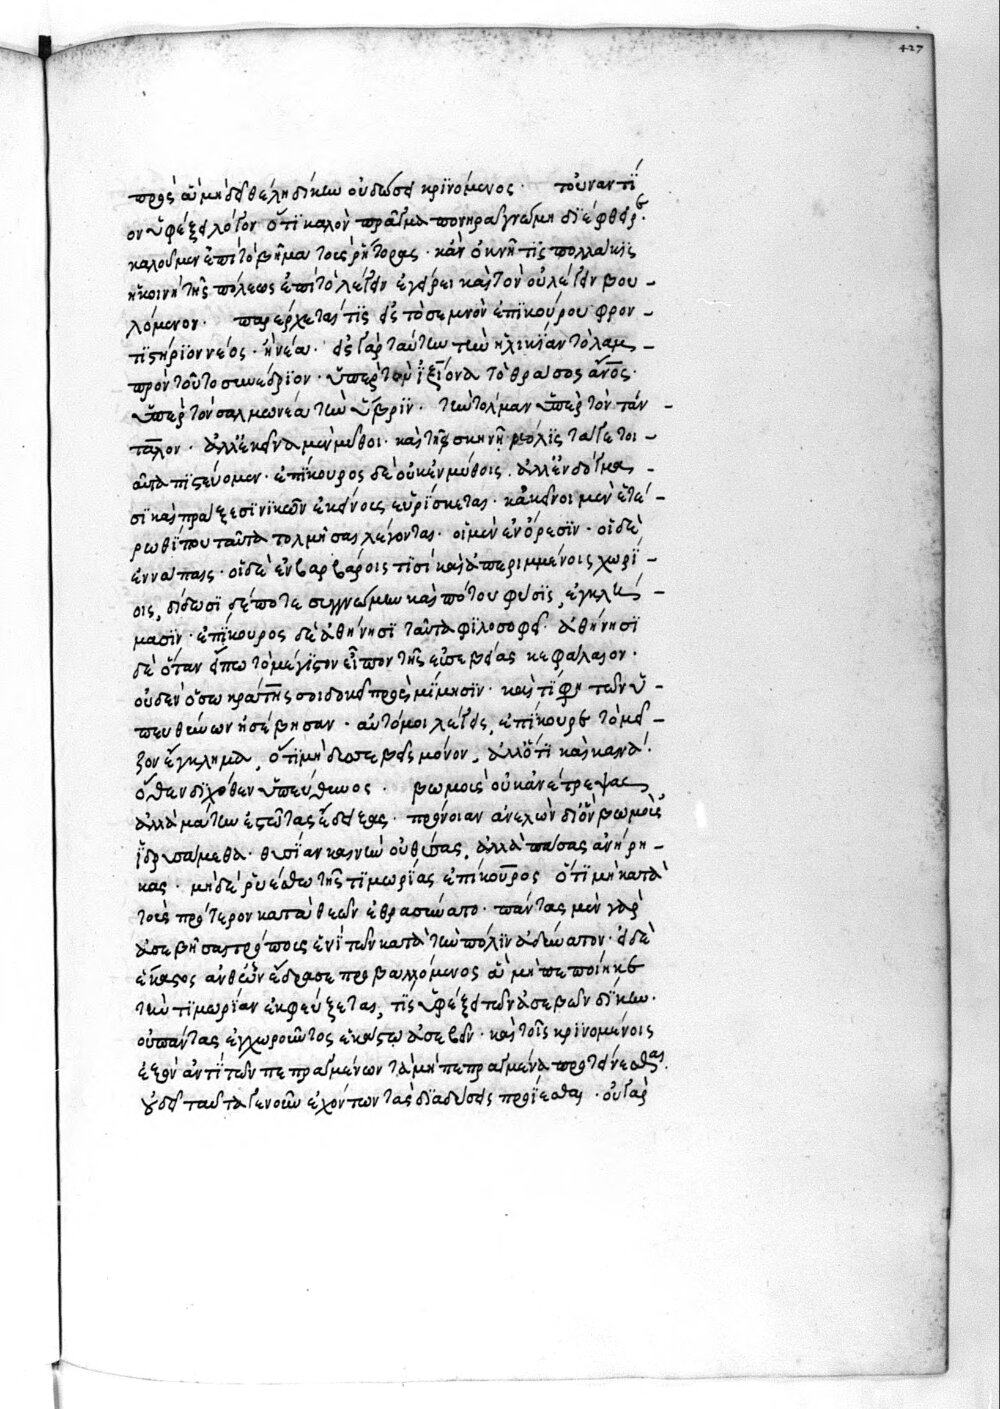 427
πρὸς ἃ μὴ δεῖ θέλῃ δίκην οὐ δώσει κρινόμενος. τοὐναντί
ον ὑφέξει λόγον ὅτι καλὸν πρᾶγμα πονηρᾷ γνώμῃ διέφθειρε.
καλοῦμεν ἐπὶ τὸ βῆμα τοὺς ῥήτορας. κἂν ὀκνῇ τις πολλάκις
ἡ κοινὴ τῆς πόλεως ἐπὶ τὸ λέγειν ἐγείρει καὶ τὸν οὐ λέγειν βου-
λόμενον. παρέρχεταί τις εἰς τὸ σεμνὸν ἐπικούρου φρον-
τιστήριον νέος. ἢ νέα. εἰς γὰρ ταύτην τὴν ἡλικίαν τὸ λαμ-
πρὸν τοῦτο συνέδριον. ὑπὲρ τὸν ἰξίονα τὸ θράσος ἄνος.
ὑπὲρ τὸν σαλμωνέα τὴν ὕβριν. τὴν τόλμαν ὑπὲρ τὸν τάν-
ταλον. ἀλλ' ἐκεῖνα μὲν μῦθοι. καὶ τῆς σκηνῆς μόλις τά γε τοι-
αῦτα πιστεύομεν. ἐπίκουρος δὲ οὐκ ἐν μύθοις. ἀλλ' ἐν δόγμα-
σι καὶ πράξεσι νικῶν ἐκείνους εὑρίσκεται. κἀκεῖνοι μὲν ἑτέ-
ρωθί που ταῦτα τολμῆσαι λέγονται. οἱ μὲν ἐν ὄρεσιν. οἱ δὲ
ἐν νάπαις. οἱ δὲ ἐν βαρβάροις τισὶ καὶ ἀπεριμμένοις χωρί-
οις, δίδωσι δέ ποτε συγγνώμην καὶ πότου φύσις, ἐγκλή-
μασιν. ἐπίκουρος δὲ ἀθήνησι ταῦτα φιλοσοφεῖ. ἀθήνησι
δὲ ὅταν εἴπω τὸ μέγιστον εἶπον τῆς εὐσεβείας κεφάλαιον.
οὐδὲν ὅσω κράτης σοι δοκεῖ πρὸς μίμησιν. καὶ τί φῂ τῶν ὑ-
πευθύνων ἠσέβησαν. αὐτόμοι λέγεις, ἐπίκουρε τὸ μεῖ-
ζον ἔγκλημα, ὅτι μὴ δυσσεβεῖς μόνον, ἀλλ' ὅτι καὶ καινά.
ὅθεν διχόθεν ὑπεύθυνος. βωμοὺς οὐκ ἀνέτρεψας
ἀλλὰ μάτην ἑστῶτας ἔδειξας. πρόνοιαν ἀνελὼν δι' ἣν βωμοὺς
ἱδρυσάμεθα. θυσίαν καινὴν οὐ θύσας, ἀλλὰ πάσας ἀνῄρη-
κας. μὴ δὲ ῥυέσθω τῆς τιμωρίας ἐπίκουρος ὅτι μὴ κατὰ
τοὺς πρότερον κατὰ θεῶν ἐθρασύνατο. πάντας μὲν γὰρ
ἀσεβῆσαι τρόπους ἑνὶ τῶν κατὰ τὴν πόλιν ἀδύνατον. εἰ δὲ
ἕκαστος ἀνθ' ὧν ἔδρασε προβαλλόμενος ἃ μὴ πεποίηκε
τὴν τιμωρίαν ἐκφεύξεται, τίς ὑφέξει τῶν ἀσεβῶν δίκην.
οὐ πάντας ἐγχωροῦντος ἑκάστῳ ἀσεβεῖν. καὶ τοῖς κρινομένοις
ἐξὸν ἀντὶ τῶν πεπραγμένων τὰ μὴ πεπραγμένα προτείνεσθαι.
οὐδεὶ ταῦτα γενοῦν ἐχόντων τὰς διαδύσεις προΐεσθαι. οὐ γὰρ